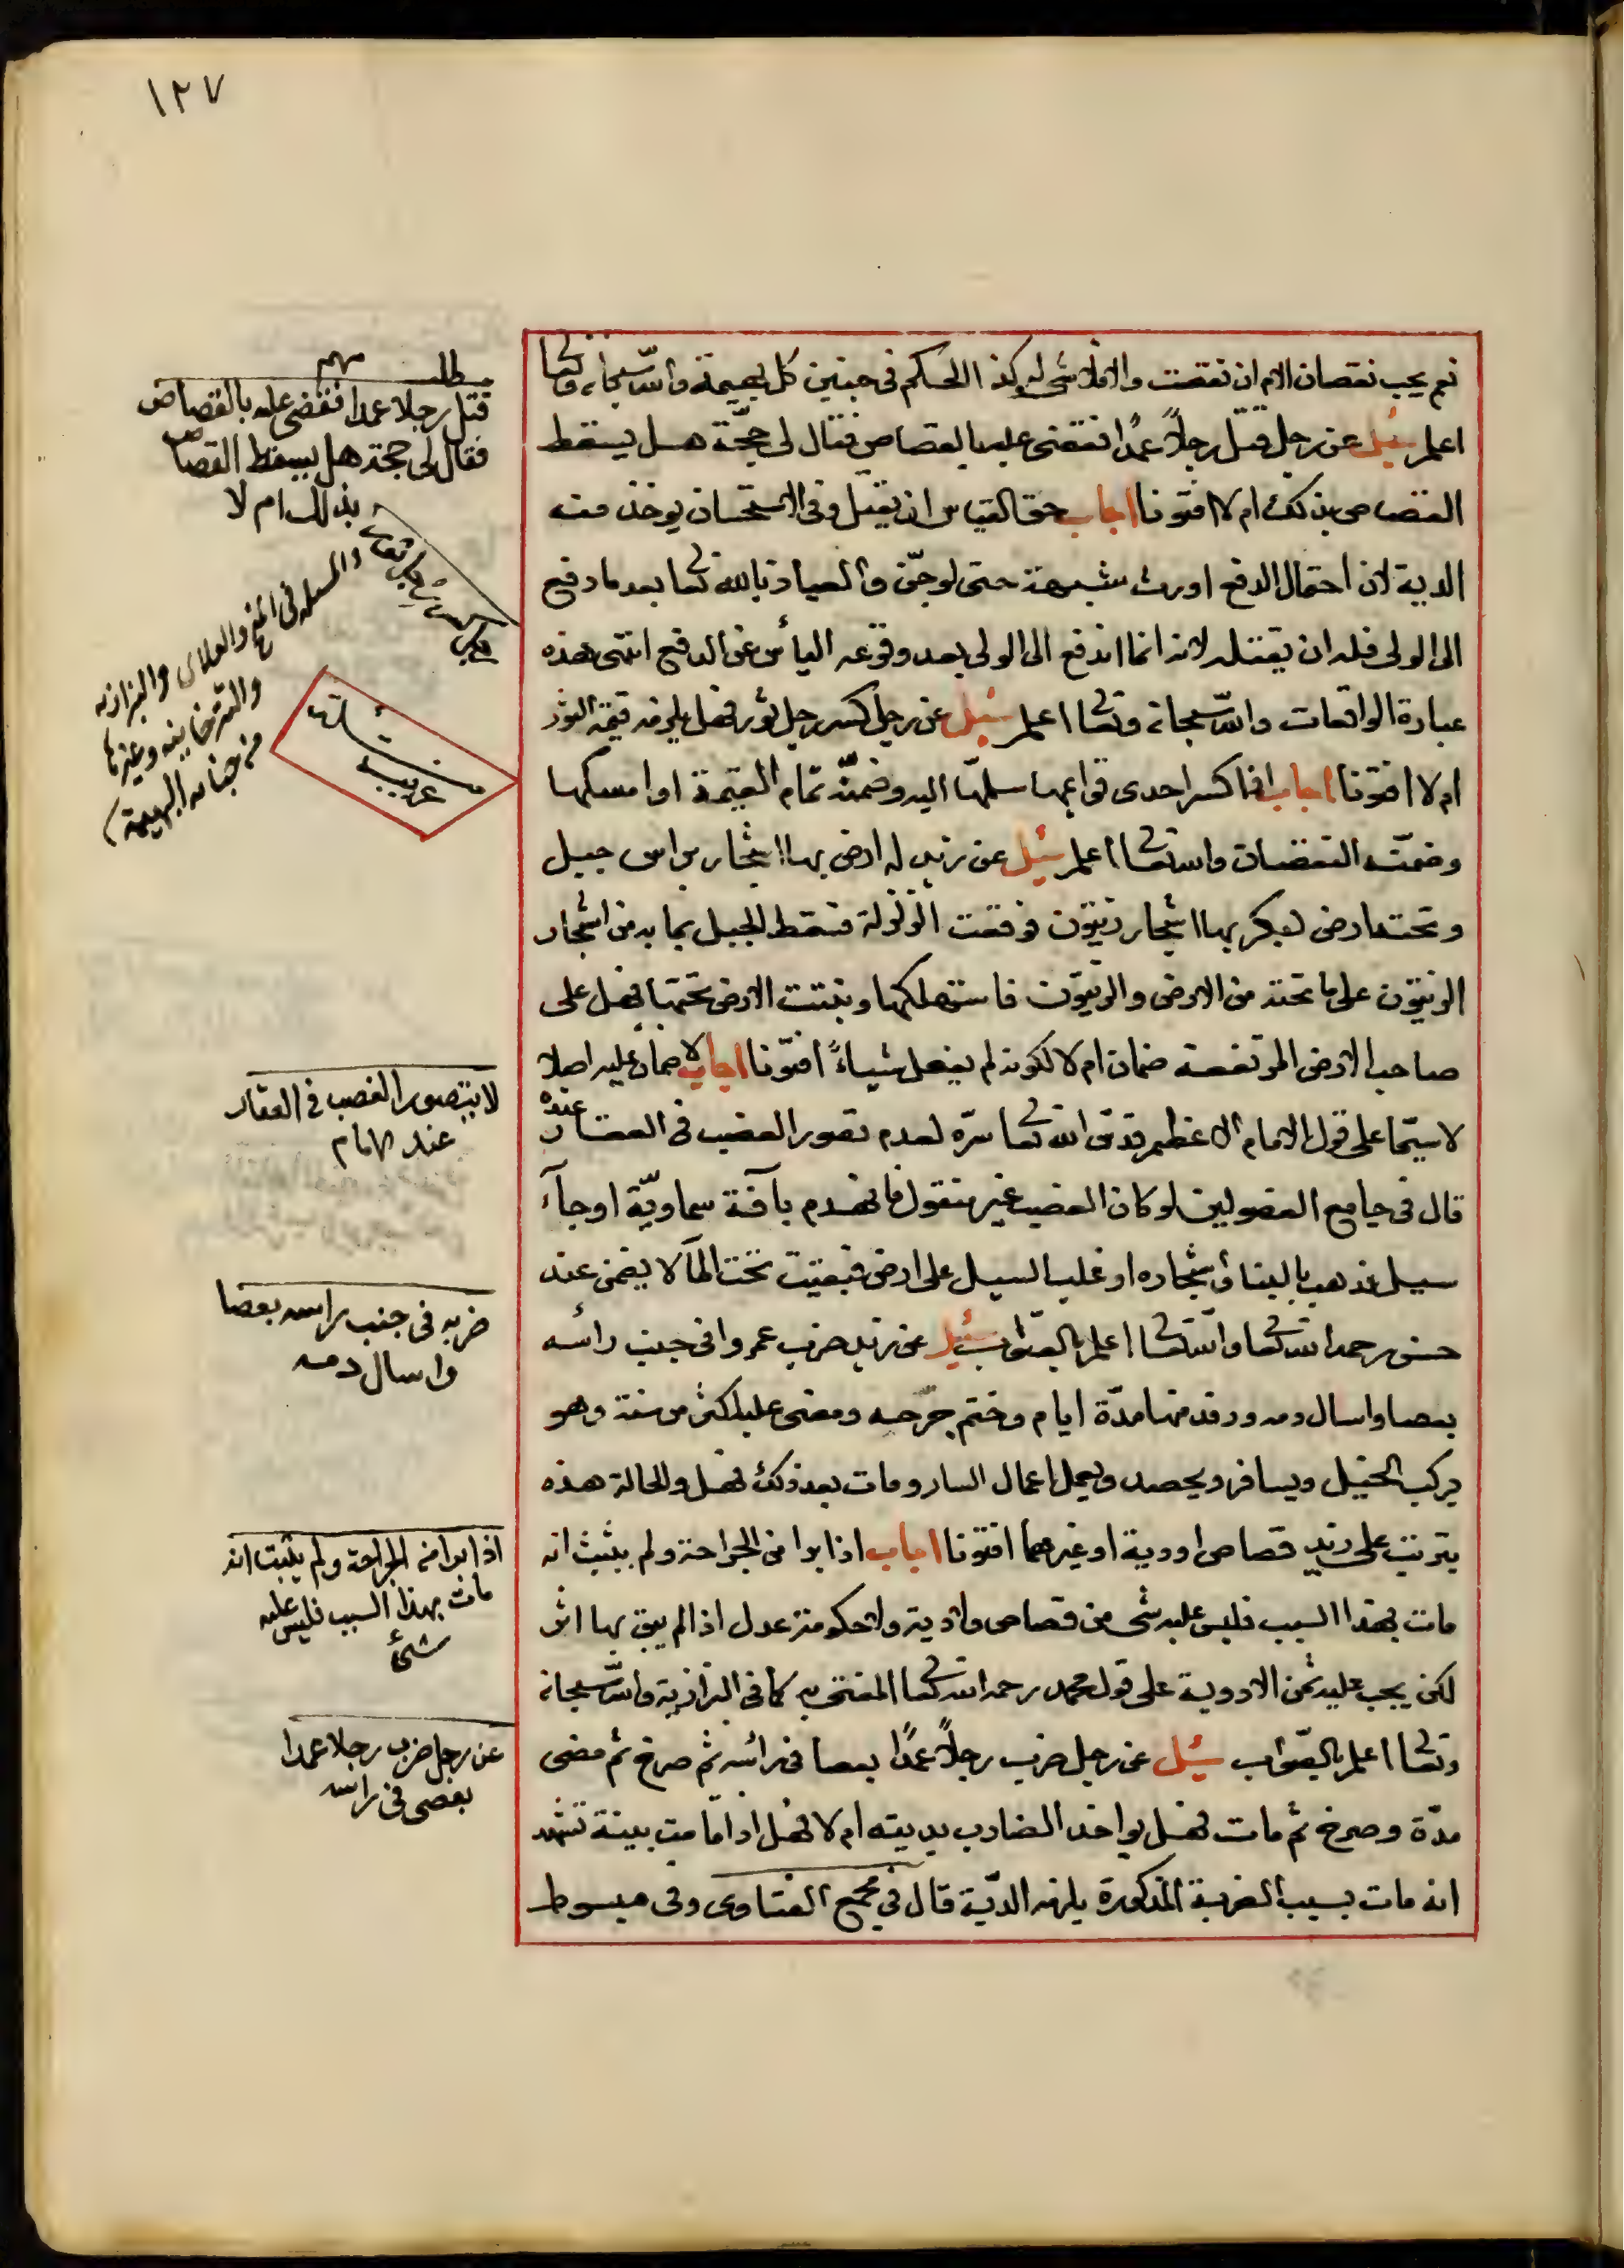 ١٢٧
نعم يجب نقصان الام ان نقصت والا فلا شي له وكذا الحكم في جنين كل بهيمة والله سبحانه وتعا
اعلم سئل عن رجل قتل رجلاً عمدًا فقضى عليه بالقصاص فقال لي حجّة هل يسقط
القصاص بذلك ام لا افتونا اجاب حق القياس ان يقتل وفي الاستحسان يوخذ منه
الدية لان احتمال الدفع اورث شبهة حتى لو جنّ والعياذ بالله تعا بعد ما دفع
الى الولى فله ان يقتله لانه انما اندفع الى الولي بعد وقوعه اليأس عن الدفع انتهى هذه
عبارة الواقعات والله سبحانه وتعا اعلم سئل عن رجل كسر رجل ثور فهل يلزمه قيمة الثور
ام لا افتونا اجاب اذا كسر احدى قوايمها سلمها اليه وضمنه تمام القيمة او امسكها
وضمنه النقصان والله تعا اعلم سئل عن زيد له ارض بها اشجار براس جبيل
وتحتها ارض لبكر بها اشجار زيتون فوقعت الزلزلة فسقط الجبل بما به من اشجار
الزيتون على ما تحته من الارض والزيتون فاستهلكها وبقيت الارض تحتها فهل على
صاحب الارض المرتفعة ضمان ام لا لكونه لم يفعل شياءً افتونا اجاب لا ضمان عليه اصلا
لا سيّما على قول الامام الاعظم قدس الله تعا سرّه لعدم تصور الغصب في العقار عنده
قال في جامع الفصولين لو كان الغصب غير منقول فانهدم بآفة سماويّة او جآء
سيل فذهب بالبنا واشجاره او غلب السيل على ارض فبقيت تحت المآ لا يضمن عند
حسن رحمه الله تعا والله تعا اعلم بالصّواب سئل عن زيد ضرب عمروا في جنب رأسه
بعصا واسال دمه ورقد منها مدّة ايام وختم جرحه ومضى عليه اكثر من سنة وهو
يركب الخيل ويسافر ويحصد ويعمل اعمال السار ومات بعد ذلك فهل والحالة هذه
يترتب على زيد قصاص او دية او غيرهما افتونا اجاب اذا برا من الجراحة ولم يثبت انه
مات بهذا السبب فليس عليه شي من قصاص ولا دية ولا حكومة عدل اذا لم يبق بها اثر
لكن يجب عليه ثمن الادوية على قول محمد رحمه الله تعا المفتى به كما في البزازية والله سبحانه
وتعا اعلم بالصّواب سئل عن رجل ضرب رجلاً عمدًا بعصا في رائسه ثم صرخ ثم مضى
مدّة وصرخ ثم مات فهل يواخذ الضارب بديته ام لا فهل اذا قامت بينة تشهد
انه مات بسبب الضربة المذكورة يلزمه الديّة قال في مجمع الفتاوى وفي مبسوط
مطلب مهم
قتل رجلا عمدا فقضى عليه بالقصاص
فقال لي حجة هل يسقط القصاص
بذلك ام لا
والمسئله في المنح والعلائي والبزازيه
والتترخانيه وغيرها
من جنايه البهيمة
مسئلة
غريبه
لا يتصور الغصب في العقار
عند الامام
ضربه في جنب راسه بعصا
واسال دمه
اذا برا من الجراحة ولم يثبت انه
مات بهذا السبب فليس عليه
شئ
عن رجل ضرب رجلا عمدا
بعصى في راسه